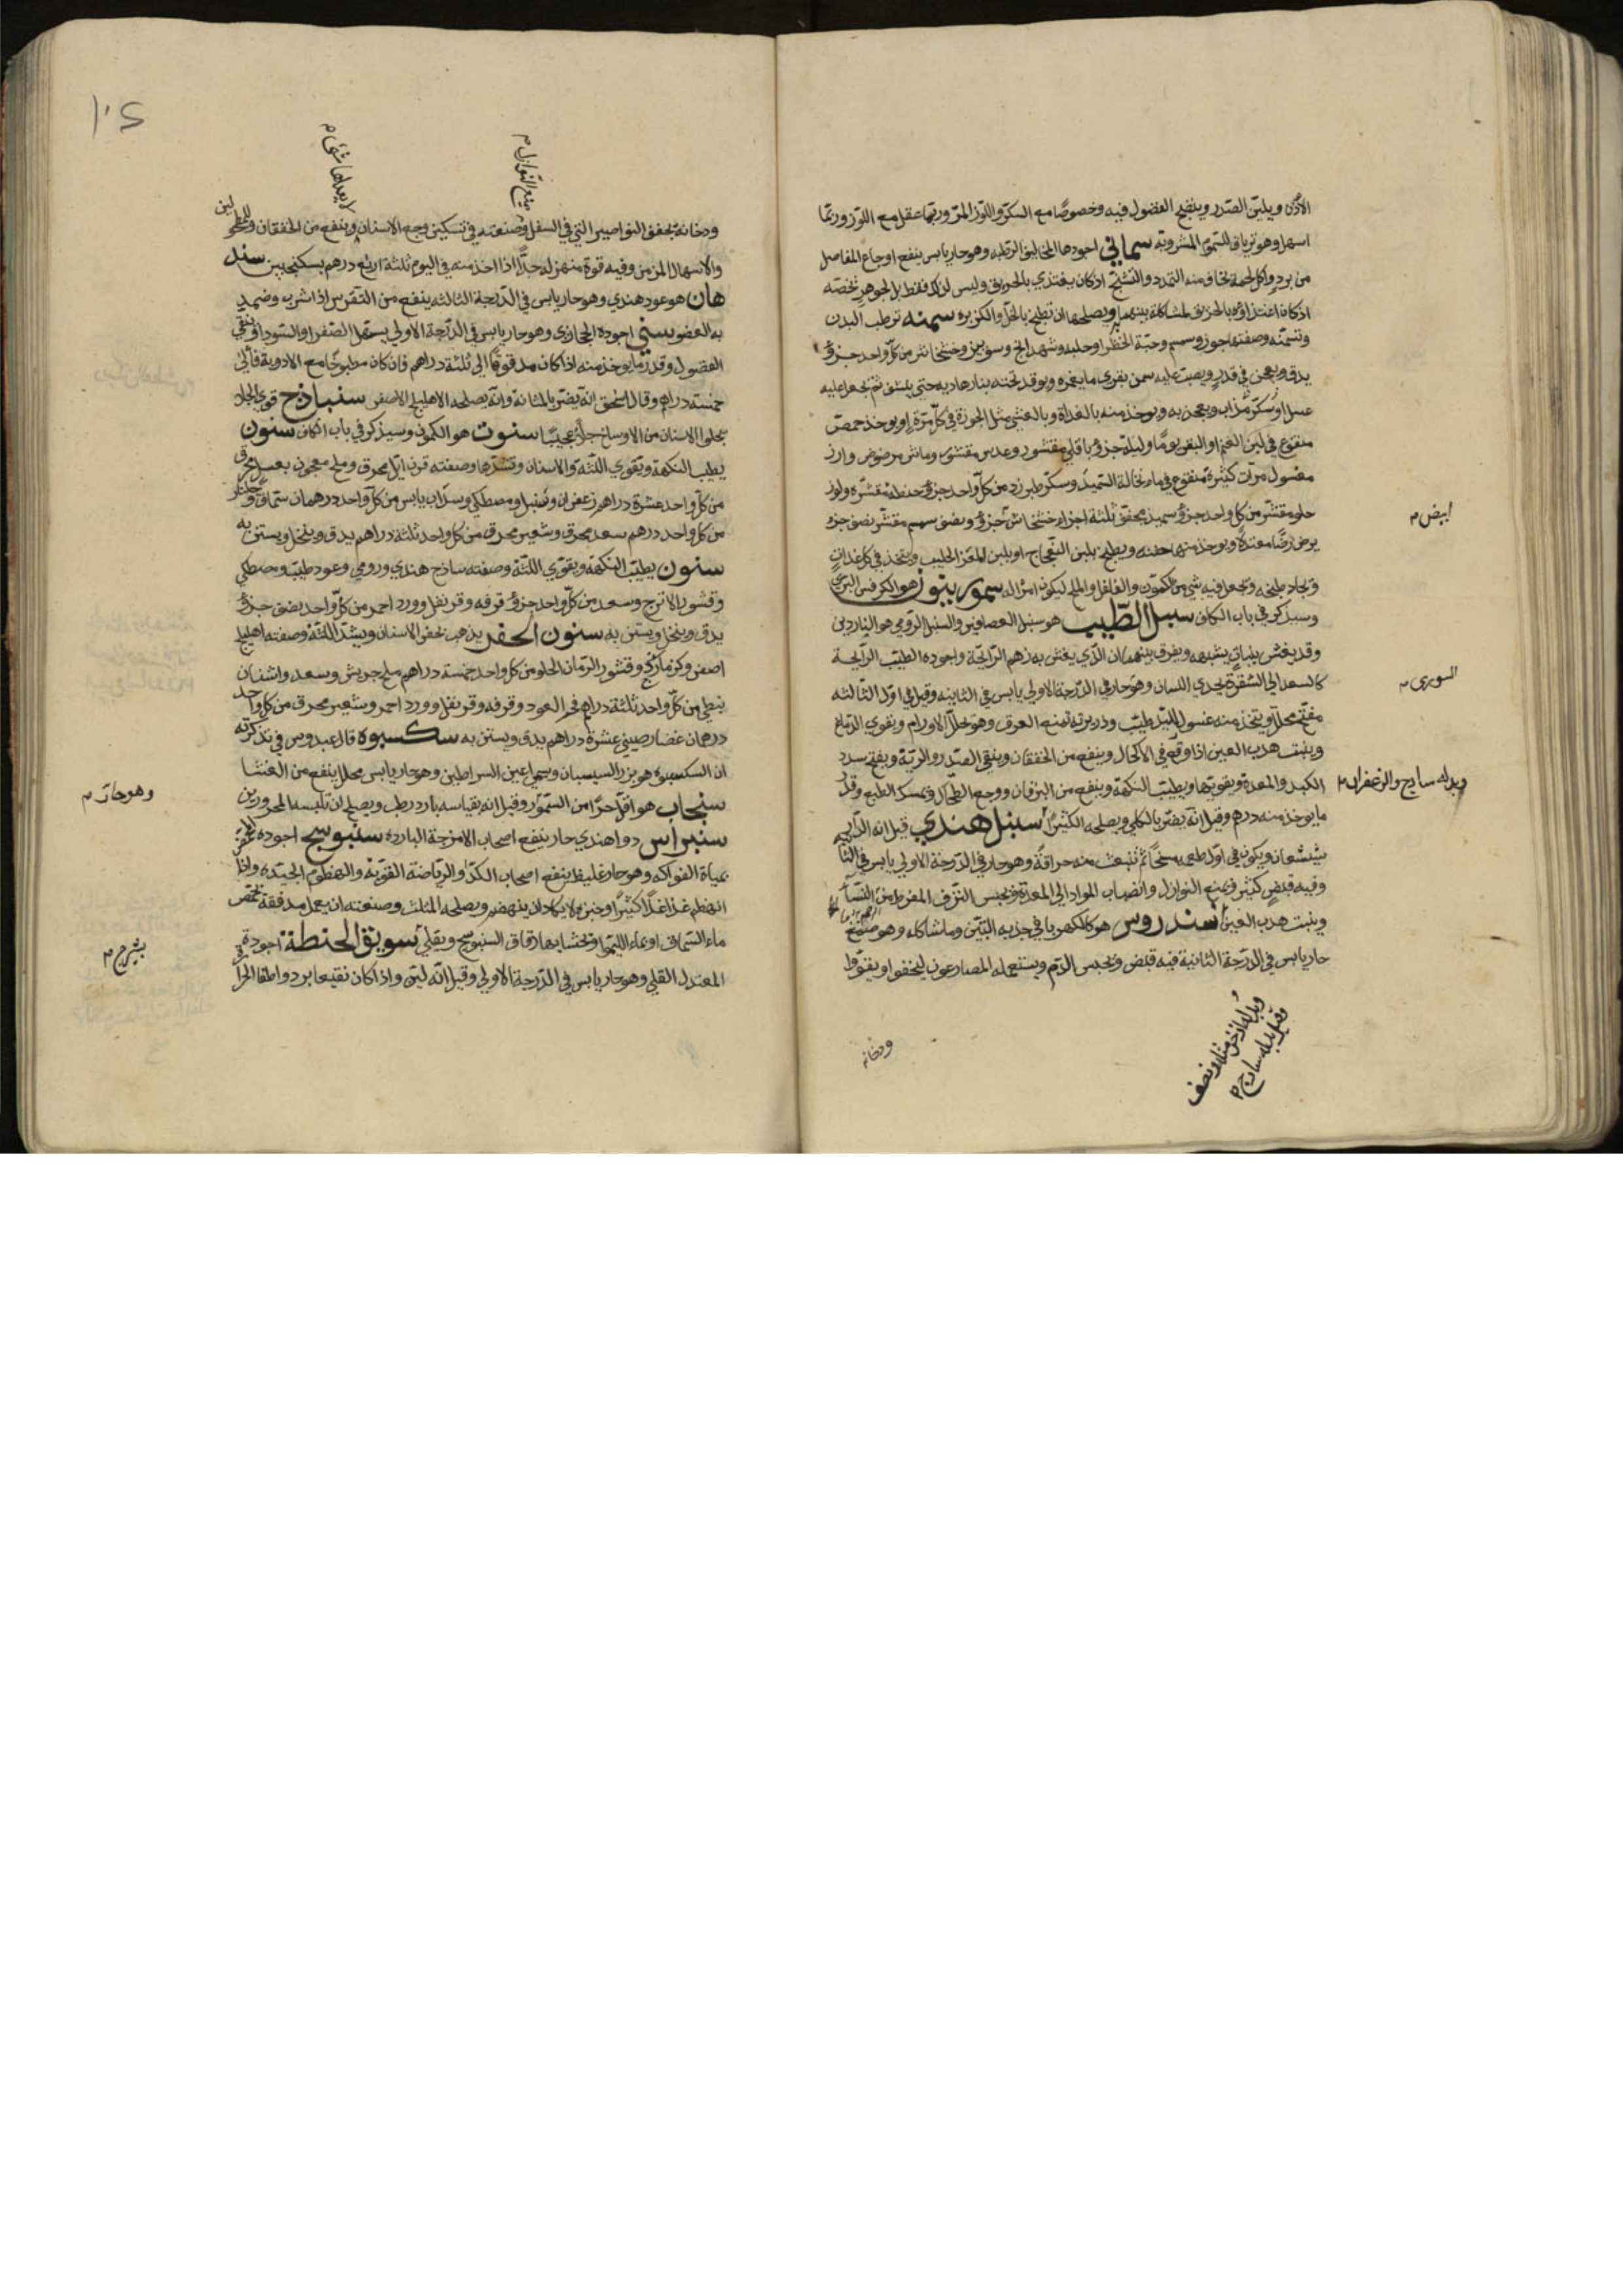 الاذن ويلين الصدر وينضج الفضول فيه وخصوصًا مع السكر واللوز المر وربما عقل مع اللوز وربما
اسهل وهو ترياق للسموم المشروبه سماني اجودها المخاليف الرطبه وهو حار يابس ينفع اوجاع المفاصل
من برد واكل لحمه يخاف منه التمدد والتشنج اذ كان يغتذي بالخربق وليس لذلك فقط بل لجوهر يخصه
اذ كان اغتذاؤه بالخربق لمشاكلة بينهما ويصلحها ان تطبخ بالخل والكزبره سمنه ترطب البدن
وتسمنه وصفتها جوز وسمسم وحبة الخضرا وحلبه وشهدانج وسورنجان وخشخاش من كل واحد جزؤ
يدق ويعجن في قدر ويصب عليه سمن بقري ما يغمره ويوقد تحته بنار هاديه حتي ينشف ثم يجعل عليه
عسل او سكر مذاب ويعجن به ويوخذ منه بالغداة وبالعشي مثل الجوزة في كل مرة او يوخذ حمص
منقوع في لبن الغنم او البقر يومًا وليلة جزؤ باقلي مقشور وعدس مقشور وماش مرضوض وارز
مغسول مرات كثيرة منقوع في ماء نخالة السميد وسكر طبرزد من كل واحد جزؤ حنطه مقشره ولوز
حلو مقشر من كل واحد جزؤ سميذ مجفف ثلثة اجزاء خشخاش جزؤ ونصف سمسم مقشر نصف جزء
ابيض م
يرض رضًا معتدلًا ويوخذ منها حفنه ويطبخ بلبن النعاج او بلبن المعز الحليب ويتخذ في كل غداة
ويجاد طبخه ويجعل فيه شي من الكمون والفلفل والملح ليكون امرا له سمورينون هو الكرفس البري
وسيذكر في باب الكاف سنبل الطيب هو سنبل العصافير والسنبل الرومي هو الناردين
وقد يغش بنبات يشبهه ويفرق بينهما ان الذي يغش به زهم الرايحة واجوده الطيب الرايحة
السوري م
كالسعد الي الشقرة يحذي اللسان وهو حار في الدرجة الاولي يابس في الثانيه وقيل في اول الثالثه
مفتح محلل ويتخذ منه غسول لليد طيب وذريرته تمنع العرق وهو يحلل الاورام ويقوي الدماغ
وينبت هدب العين اذا وقع في الاكحال وينفع من الخفقان وينقي الصدر والرية ويفتح سدد
الكبد والمعدة ويقويها ويطيب النكهة وينفع من اليرقان ووجع الطحال ويمسك الطبع وقدر
وبدله سادج والزعفران م
ما يوخذ منه درهم وقيل انه يضر بالكلي ويصلحه الكثيرا سنبل هندي قيل انه الدار
شيشعان ويكون في اول طعمه سخًا ثم تنبعث منه حرافة وهو حار في الدرجة الاولي يابس في الثانيه
وفيه قبض كثير ويمنع النوازل وانصباب المواد الي المعدة ويحبس النزف المفرط من النسآ
وينبت هدب العين سندروس هو كالكهربا في جذبه التبن وما شاكله وهو صمغ
حار يابس في الدرجة الثانية فيه قبض ويحبس الدم ويستعمله المصارعون ليخفوا ويقووا
وبدله اذخر مثله ونصف
وقيل بدله سادج م
ودخانه
١٠٢
يمنع النوازل م
لا يعدلها شي م
ودخانه يجفف النواصير التي في السفل وصنعته في تسكين وجع الاسنان وينفع من الخفقان والطحال
والاسهال المزمن وفيه قوة منهزله جدًا اذا اخذ منه في اليوم ثلثة ارباع درهم بسكنجبين سند
هان هو عود هندي وهو حار يابس في الدرجة الثالثه ينفع من النقرس اذا شرب وضمد
به العضو سني اجوده الحجازي وهو حار يابس في الدرجة الاولي يسهل الصفرا والسودا وينقي
الفضول وقدر ما يوخذ منه اذا كان مدقوقًا الي ثلثة دراهم فان كان مطبوخًا مع الادوية فالي
خمسة دراهم وقال اسحق انه يضر بالمثانه وانه يصلحه الاهليلج الاصفر سنباذج قوي الجلاء
يجلوا الاسنان من الاوساخ جلاءً عجيبًا سنوت هو الكمون وسيذكر في باب الكاف سنون
يطيب النكهة ويقوي اللثة والاسنان وتشدها وصفته قرن ايل محرق وملح معجون بعسل محرق
من كل واحد عشرة دراهم زعفران وسنبل ومصطكي وسذاب يابس من كل واحد درهمان سماق وجلنار
من كل واحد درهم سعد محرق وشعير محرق من كل واحد ثلثة دراهم يدق وينخل ويستن به
سنون يطيب النكهة ويقوي اللثة وصفته ساذج هندي ورومي وعود طيب ومصطكي
وقشور الاترج وسعد من كل واحد جزؤ قرفه وقرنفل وورد احمر من كل واحد نصف جزؤ
يدق وينخل ويستن به سنون الحفر يذهب بحفر الاسنان ويشد اللثة وصفته اهليلج
اصفر وكزمازج وقشور الرمان الحلو من كل واحد خمسة دراهم ملح جريش وسعد واشنان
نبطي من كل واحد ثلثة دراهم فحم العود وقرفه وقرنفل وورد احمر وشعير محرق من كل واحد
درهمان غضار صيني عشرة دراهم يدق ويستن به سكسبوه قال عبدوس في تذكرته
ان السكسبوه هو بزر السيسبان ويسمي اعين السراطين وهو حار يابس محلل ينفع من الغشا
سنجاب هو اقل حرًا من السمور وقيل انه بقياسه بارد رطب ويصلح ان تلبسه المحرورين
وهو حار م
سنبراس دوا هندي حار ينفع اصحاب الامزجة البارده سنبوسج اجوده المحمض
بمياه الفواكه وهو حار غليظ ينفع اصحاب الكد والرياضة القوية والهضوم الجيده واذا
انهضم غذا غذاءً كثيرًا وخبزه لا يكاد ان ينهضم ويصلحه المثلث وصنعته ان يعمل مدققة تحمض
ماء السماق او بماء الليمو او تحشا بها رقاق السنبوسج ويقلي سويق الحنطة اجوده
بشيرج م
المعتدل القلي وهو حار يابس في الدرجة الاولي وقيل انه لين واذا كان نقيعا برد واطفا الحراره